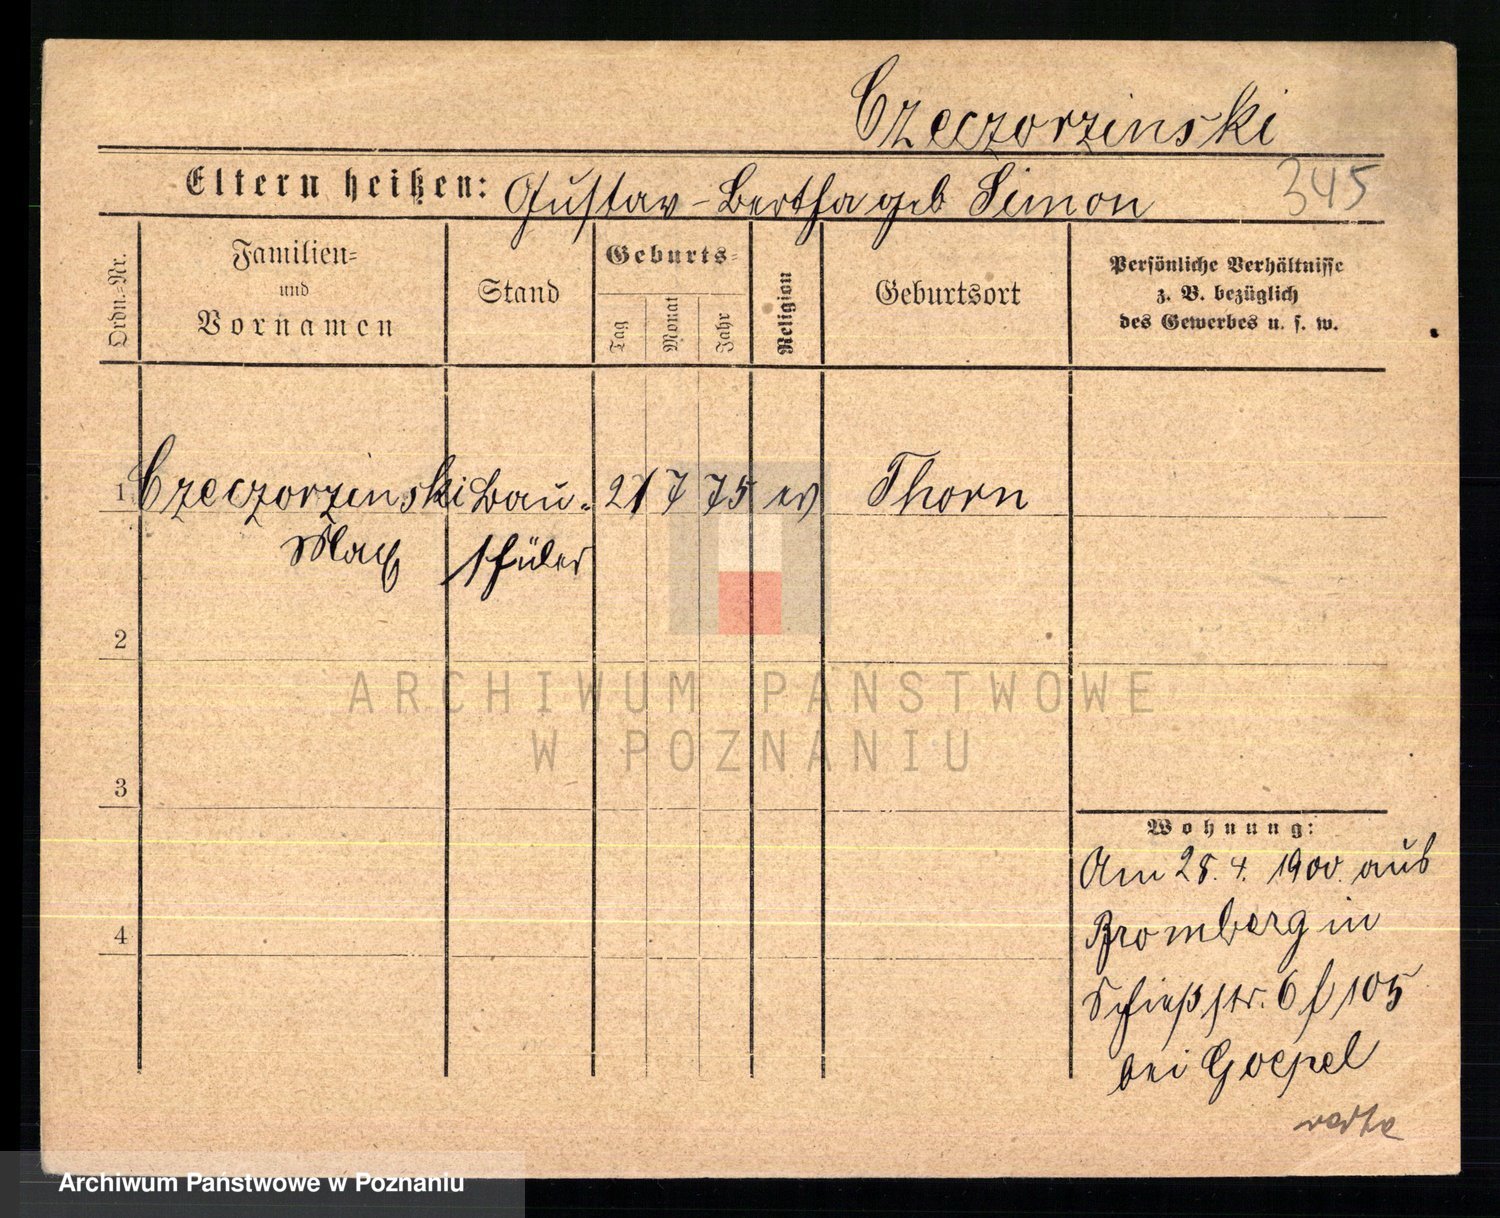 Czeczorzinski
Eltern heißen: Gustav - Bertha geb Simon 345
Ordn.-Nr.
Familien-
und
Vornamen
Stand
Geburts-
Tag
Monat
Jahr
Religion
Geburtsort
Persönliche Verhältnisse
z. B. bezüglich
des Gewerbes u. s. w.
1 Czeczorzinski Bau- 21 7 75 ev Thorn
Max schüler
2
ARCHIWUM PAŃSTWOWE
W POZNANIU
3
Wohnung:
Am 28. 4. 1900. aus
Bromberg in
4
Schießstr. 6 f 105
bei Goepel
Archiwum Państwowe w Poznaniu